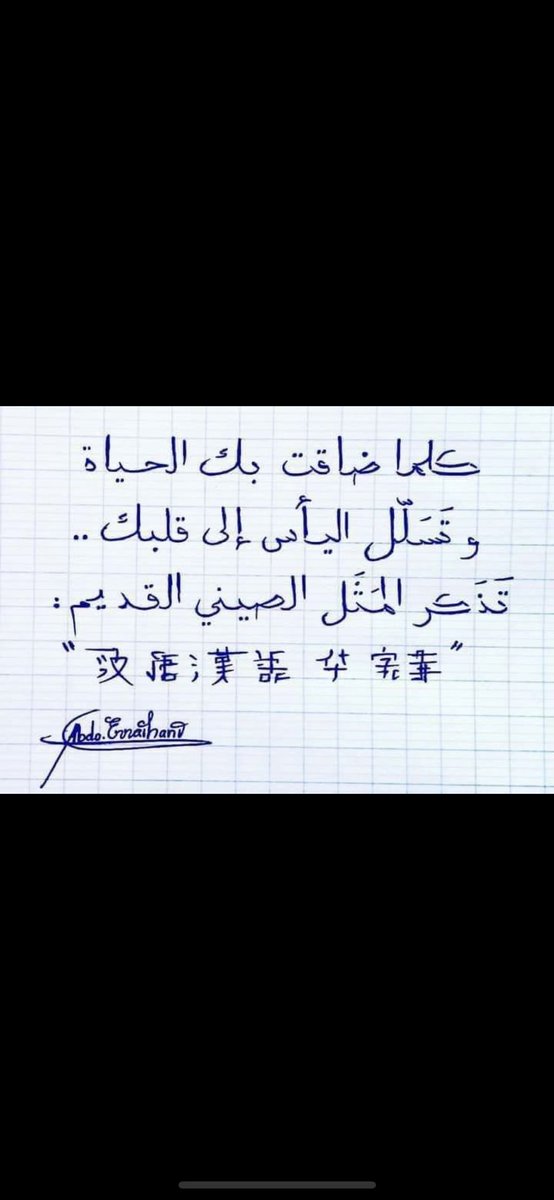 كلما ضاقت بك الحياة
وتَسَلّل اليأس إلى قلبك ..
تَذَكر المَثَل الصيني القديم:
"汉语;漢語 华 字華"
Abdo.